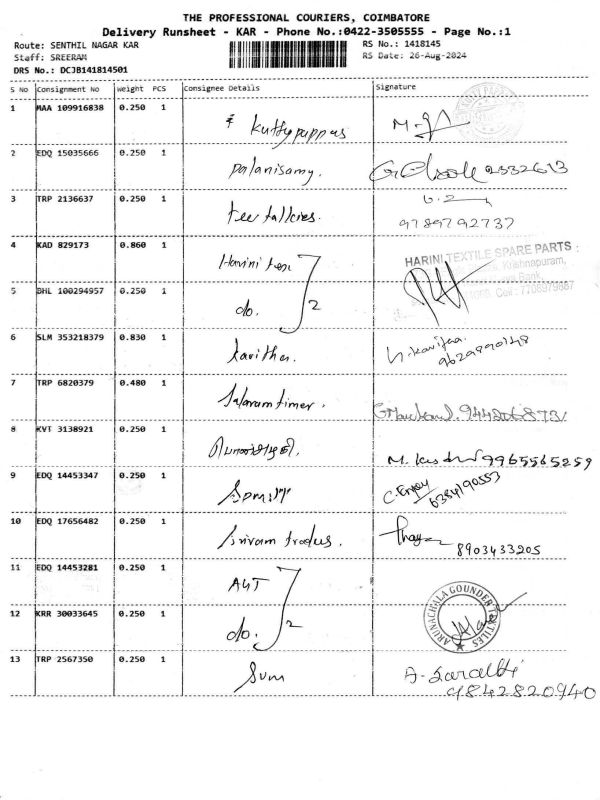 THE PROFESSIONAL COURIERS, COIMBATORE
Delivery Runsheet - KAR - Phone No.:0422-3505555 - Page No.:1
Route: SENTHIL NAGAR KAR
RS No.: 1418145
Staff: SREERAM
RS Date: 26-Aug-2024
DRS No.: DCJB141814501
S No Consignment No Weight PCS Consignee Details Signature
1 MAA 109916838 0.250 1 Kuttypappas
2 EDQ 15035666 0.250 1 palanisamy. 2332613
3 TRP 2136637 0.250 1 9789792737
4 KAD 829173 0.860 1 Harini
HARINI TEXTILE SPARE PARTS
Krishnapuram,
Bank,
Cell : 7708979887
5 BHL 100294957 0.250 1 do. 2
6 SLM 353218379 0.830 1 Kavitha. 9629890148
7 TRP 6820379 0.480 1
8 KVT 3138921 0.250 1 9965565259
9 EDQ 14453347 0.250 1 6384190553
10 EDQ 17656482 0.250 1 Sriram traders. 8903433205
11 EDQ 14453281 0.250 1 AGT
ARUNACHALA GOUNDER TEXTILES
12 KRR 30033645 0.250 1 do. 2
13 TRP 2567350 0.250 1 Sum
9842820940